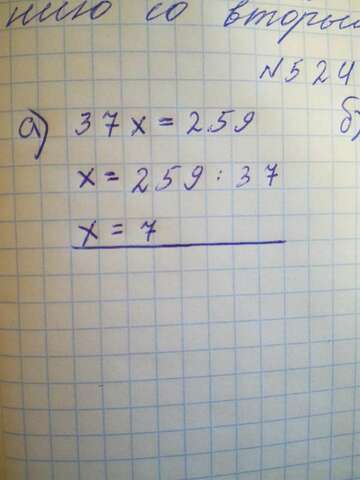 нию со вторым
№524
а) 37x = 259 б)
x = 259 : 37
x = 7